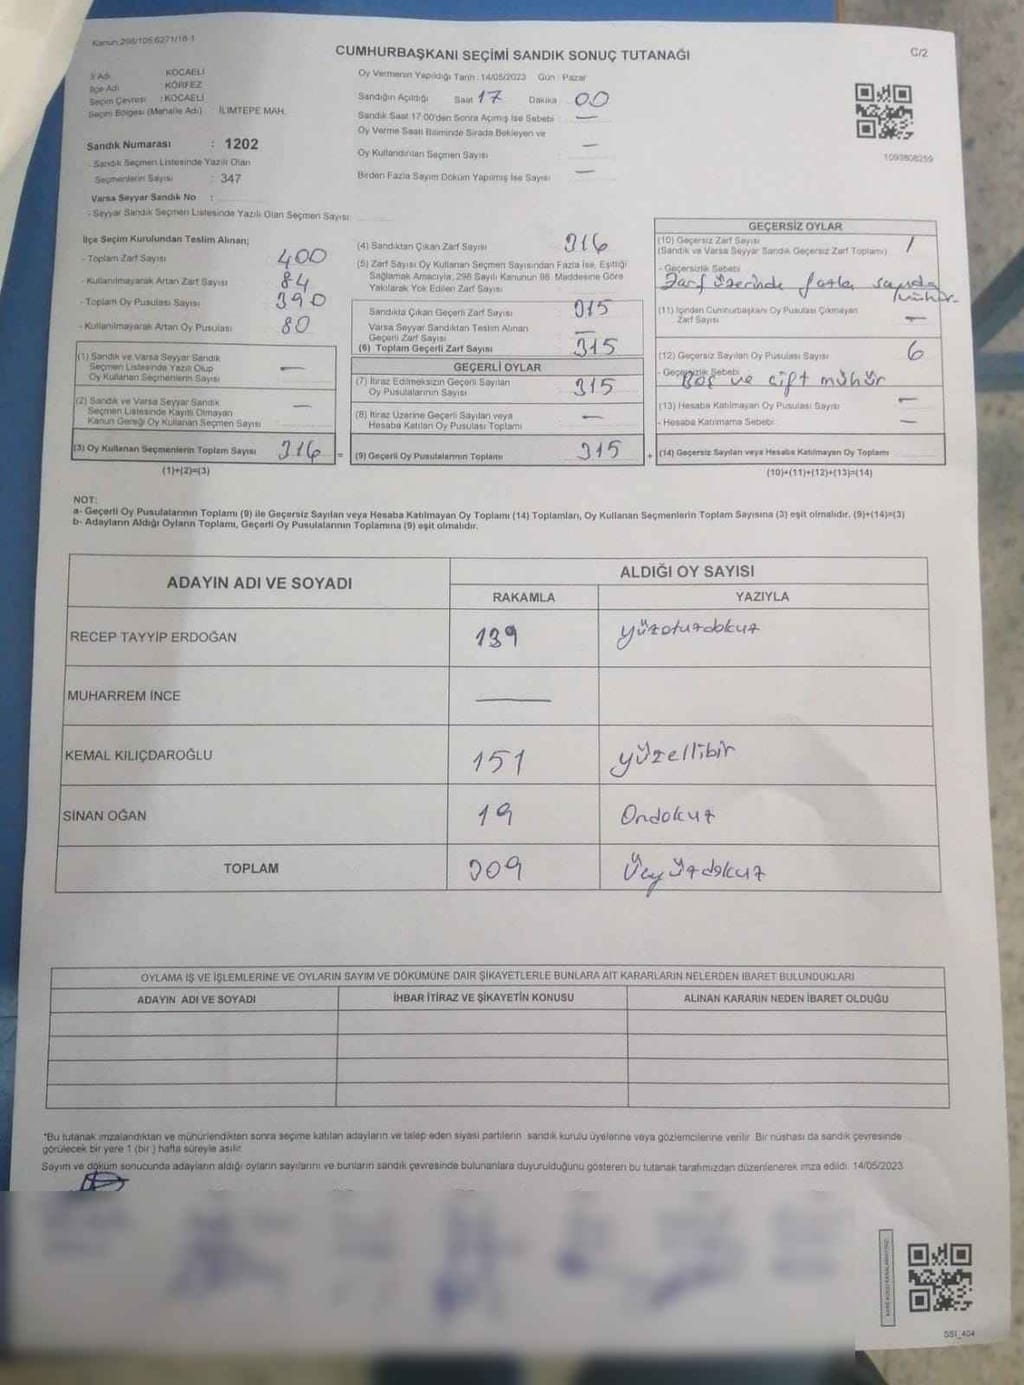 Kanun:298/105,6271/18-1
CUMHURBAŞKANI SEÇİMİ SANDIK SONUÇ TUTANAĞI
C/2
İl Adı : KOCAELİ
İlçe Adı : KÖRFEZ
Seçim Çevresi : KOCAELİ
Seçim Bölgesi (Mahalle Adı) : İLİMTEPE MAH.
Sandık Numarası : 1202
- Sandık Seçmen Listesinde Yazılı Olan
Seçmenlerin Sayısı : 347
Varsa Seyyar Sandık No :
- Seyyar Sandık Seçmen Listesinde Yazılı Olan Seçmen Sayısı:
Oy Vermenin Yapıldığı Tarih : 14/05/2023 Gün : Pazar
Sandığın Açıldığı Saat 17 Dakika 00
Sandık Saat 17:00'den Sonra Açımış İse Sebebi —
Oy Verme Saati Bitiminde Sırada Bekleyen ve
Oy Kullandırılan Seçmen Sayısı —
Birden Fazla Sayım Döküm Yapılmış İse Sayısı —
1093808259
İlçe Seçim Kurulundan Teslim Alınan;
- Toplam Zarf Sayısı 400
- Kullanılmayarak Artan Zarf Sayısı 84
- Toplam Oy Pusulası Sayısı 390
- Kullanılmayarak Artan Oy Pusulası 80
(1) Sandık ve Varsa Seyyar Sandık
Seçmen Listesinde Yazılı Olup
Oy Kullanan Seçmenlerin Sayısı —
(2) Sandık ve Varsa Seyyar Sandık
Seçmen Listesinde Kayıtlı Olmayan
Kanun Gereği Oy Kullanan Seçmen Sayısı —
(3) Oy Kullanan Seçmenlerin Toplam Sayısı 316 =
(1)+(2)=(3)
(4) Sandıktan Çıkan Zarf Sayısı 316
(5) Zarf Sayısı Oy Kullanan Seçmen Sayısından Fazla İse, Eşitliği
Sağlamak Amacıyla, 298 Sayılı Kanunun 98. Maddesine Göre
Yakılarak Yok Edilen Zarf Sayısı
Sandıkta Çıkan Geçerli Zarf Sayısı 315
Varsa Seyyar Sandıktan Teslim Alınan
Geçerli Zarf Sayısı —
(6) Toplam Geçerli Zarf Sayısı 315
GEÇERLİ OYLAR
(7) İtiraz Edilmeksizin Geçerli Sayılan
Oy Pusulalarının Sayısı 315
(8) İtiraz Üzerine Geçerli Sayılan veya
Hesaba Katılan Oy Pusulası Toplamı —
(9) Geçerli Oy Pusulalarının Toplamı 315 +
GEÇERSİZ OYLAR
(10) Geçersiz Zarf Sayısı 1
(Sandık ve Varsa Seyyar Sandık Geçersiz Zarf Toplamı)
- Geçersizlik Sebebi
Zarf üzerinde fazla sayıda
mühür
(11) İçinden Cumhurbaşkanı Oy Pusulası Çıkmayan
Zarf Sayısı —
(12) Geçersiz Sayılan Oy Pusulası Sayısı 6
- Geçersizlik Sebebi
Boş ve çift mühür
(13) Hesaba Katılmayan Oy Pusulası Sayısı —
- Hesaba Katılmama Sebebi —
(14) Geçersiz Sayılan veya Hesaba Katılmayan Oy Toplamı
(10)+(11)+(12)+(13)=(14)
NOT:
a- Geçerli Oy Pusulalarının Toplamı (9) ile Geçersiz Sayılan veya Hesaba Katılmayan Oy Toplamı (14) Toplamları, Oy Kullanan Seçmenlerin Toplam Sayısına (3) eşit olmalıdır. (9)+(14)=(3)
b- Adayların Aldığı Oyların Toplamı, Geçerli Oy Pusulalarının Toplamına (9) eşit olmalıdır.
ADAYIN ADI VE SOYADI
ALDIĞI OY SAYISI
RAKAMLA YAZIYLA
RECEP TAYYİP ERDOĞAN 139 yüzotuzdokuz
MUHARREM İNCE —
KEMAL KILIÇDAROĞLU 151 yüzellibir
SİNAN OĞAN 19 Ondokuz
TOPLAM 309 Üçyüzdokuz
OYLAMA İŞ VE İŞLEMLERİNE VE OYLARIN SAYIM VE DÖKÜMÜNE DAİR ŞİKAYETLERLE BUNLARA AİT KARARLARIN NELERDEN İBARET BULUNDUKLARI
ADAYIN ADI VE SOYADI İHBAR İTİRAZ VE ŞİKAYETİN KONUSU ALINAN KARARIN NEDEN İBARET OLDUĞU
*Bu tutanak imzalandıktan ve mühürlendikten sonra seçime katılan adayların ve talep eden siyasi partilerin sandık kurulu üyelerine veya gözlemcilerine verilir. Bir nüshası da sandık çevresinde
görülecek bir yere 1 (bir) hafta süreyle asılır.
Sayım ve döküm sonucunda adayların aldığı oyların sayılarını ve bunların sandık çevresinde bulunanlara duyurulduğunu gösteren bu tutanak tarafımızdan düzenlenerek imza edildi. 14/05/2023
SSI_404